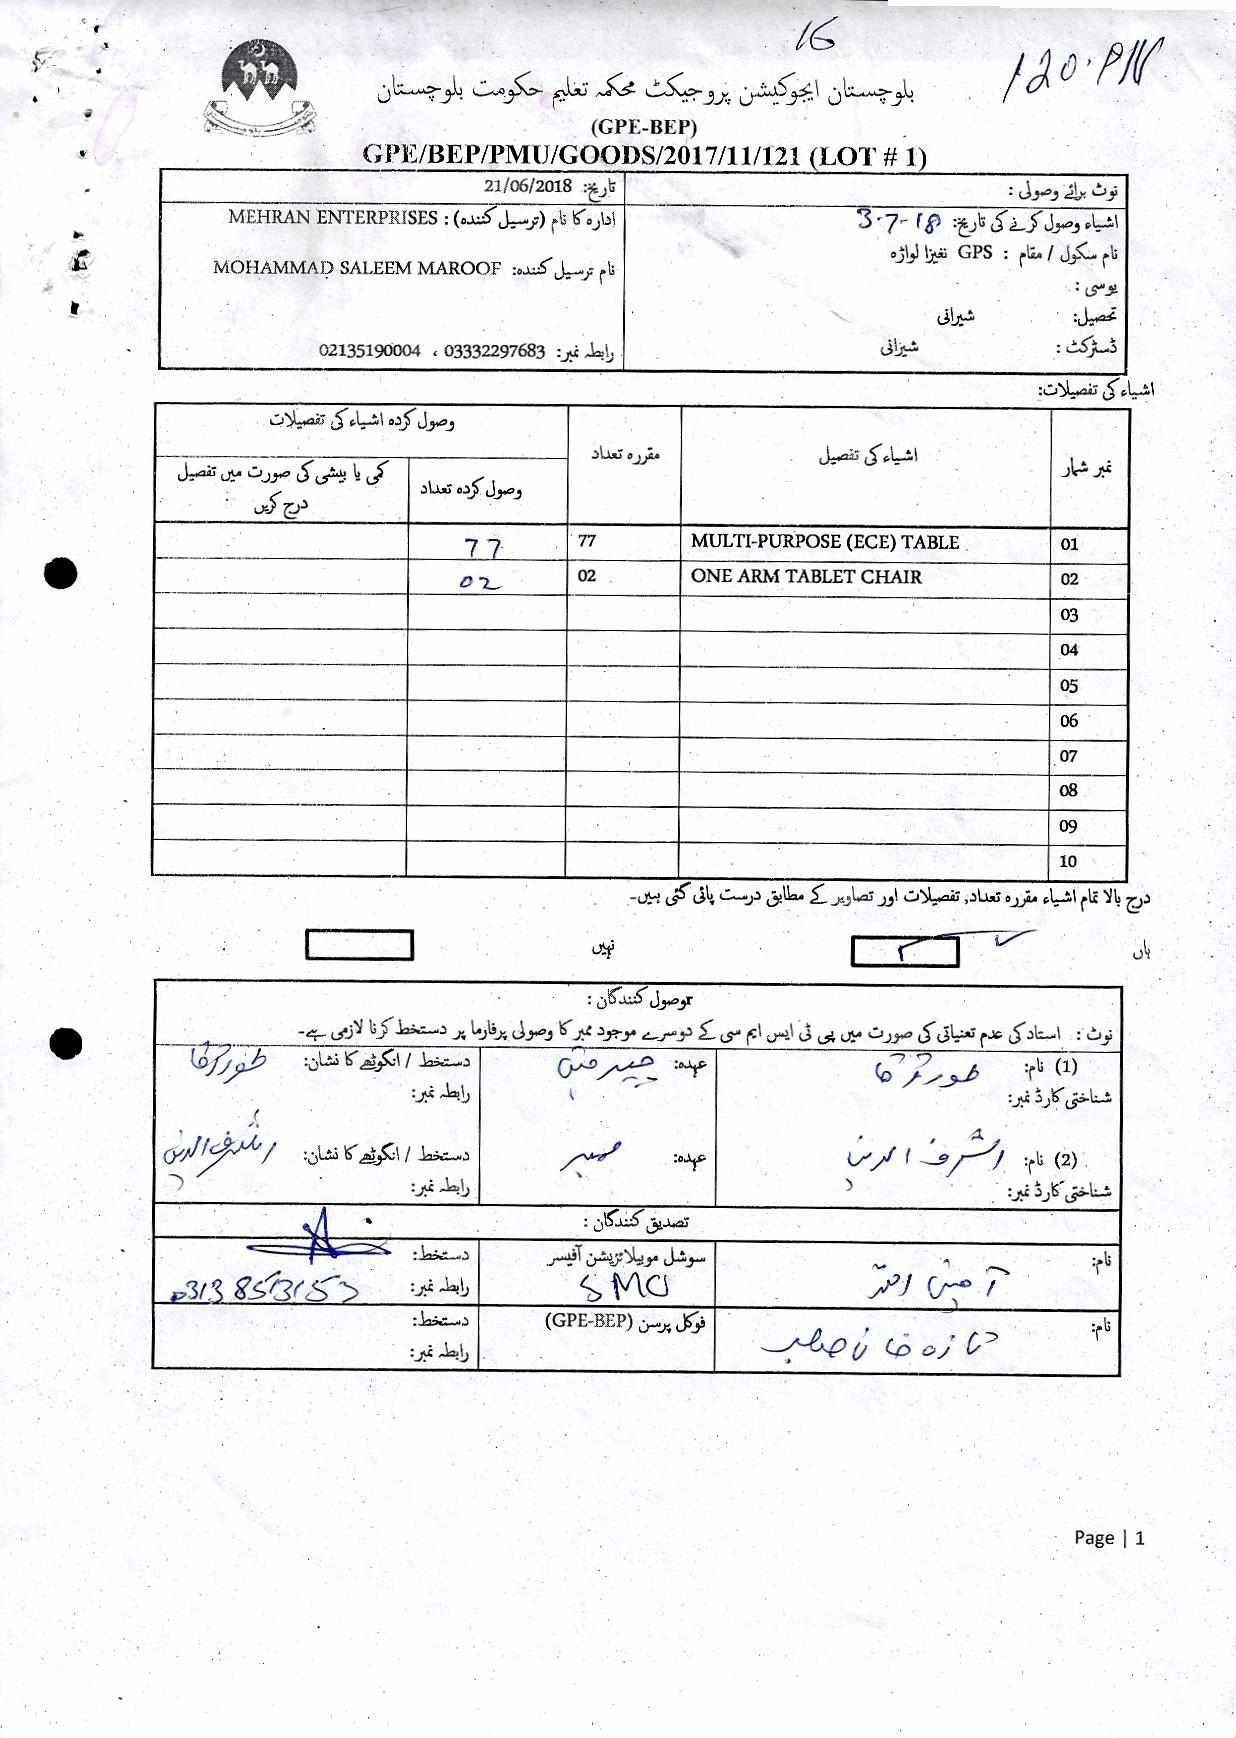 16
120.PM
بلوچستان ایجوکیشن پروجیکٹ محکمہ تعلیم حکومت بلوچستان
(GPE-BEP)
GPE/BEP/PMU/GOODS/2017/11/121 (LOT # 1)
نوٹ برائے وصولی :
تاریخ: 21/06/2018
اشیاء وصول کرنے کی تاریخ: 3-7-18
ادارہ کا نام (ترسیل کنندہ) : MEHRAN ENTERPRISES
نام سکول / مقام : GPS نغیزا لواڑہ
نام ترسیل کنندہ: MOHAMMAD SALEEM MAROOF
یوسی :
تحصیل: شیرانی
ڈسٹرکٹ : شیرانی
رابطہ نمبر: 03332297683 ، 02135190004
اشیاء کی تفصیلات:
نمبر شمار اشیاء کی تفصیل مقررہ تعداد وصول کردہ اشیاء کی تفصیلات
وصول کردہ تعداد کمی یا بیشی کی صورت میں تفصیل درج کریں
01 MULTI-PURPOSE (ECE) TABLE 77 77
02 ONE ARM TABLET CHAIR 02 02
03
04
05
06
07
08
09
10
درج بالا تمام اشیاء مقررہ تعداد, تفصیلات اور تصاویر کے مطابق درست پائی گئی ہیں۔
ہاں نہیں
وصول کنندگان :
نوٹ : استاد کی عدم تعیناتی کی صورت میں پی ٹی ایس ایم سی کے دوسرے موجود ممبر کا وصولی پرفارما پر دستخط کرنا لازمی ہے۔
(1) نام: عہدہ: چیرمین دستخط / انگوٹھے کا نشان:
شناختی کارڈ نمبر: رابطہ نمبر:
(2) نام: اشرف الدین عہدہ: ممبر دستخط / انگوٹھے کا نشان: اشرف الدین
شناختی کارڈ نمبر: رابطہ نمبر:
تصدیق کنندگان :
نام: سوشل موبیلائزیشن آفیسر دستخط:
SMO رابطہ نمبر: 03138513153
نام: فوکل پرسن (GPE-BEP) دستخط:
رابطہ نمبر:
Page | 1